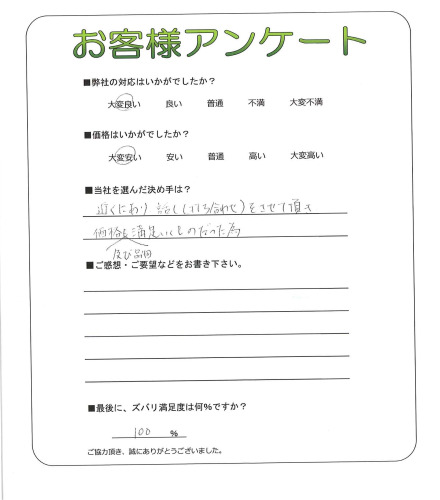 お客様アンケート
■弊社の対応はいかがでしたか？
大変良い 良い 普通 不満 大変不満
■価格はいかがでしたか？
大変安い 安い 普通 高い 大変高い
■当社を選んだ決め手は？
近くにあり 話し(打ち合わせ)をさせて頂き
価格も満足いくものだった為
及び品
■ご感想・ご要望などをお書き下さい。
■最後に、ズバリ満足度は何%ですか？
100 %
ご協力頂き、誠にありがとうございました。